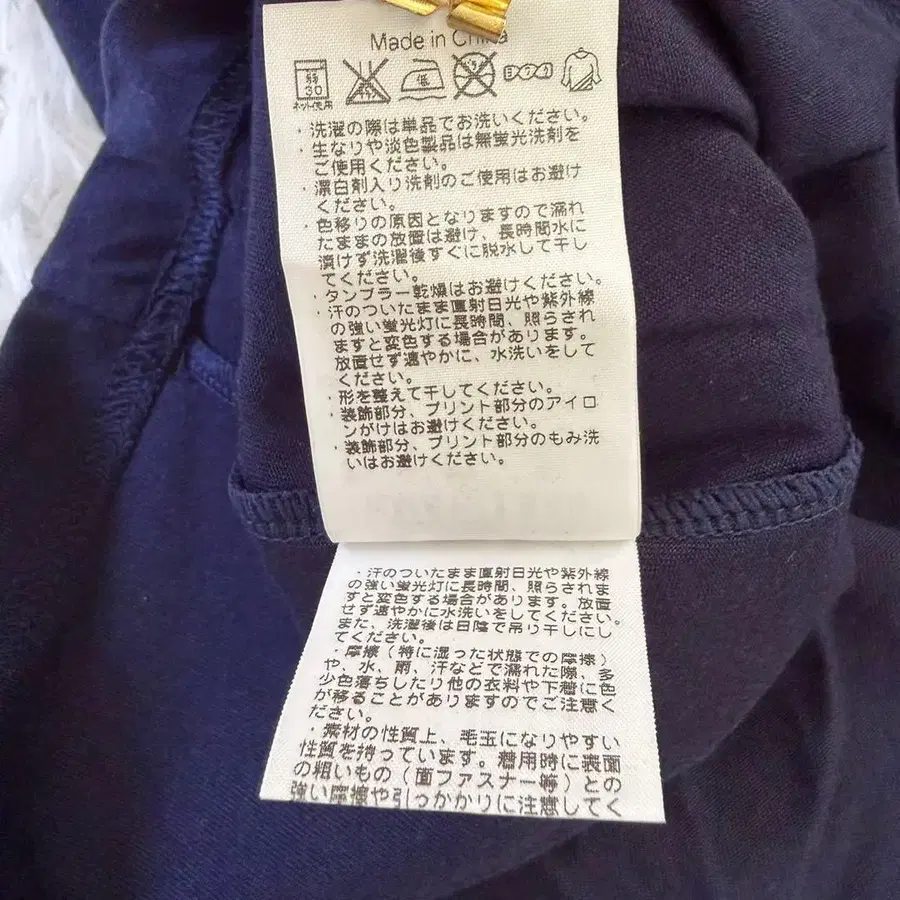 Made in China
弱
30
低
ネット使用
・洗濯の際は単品でお洗いください。
・生なりや淡色製品は無蛍光洗剤を
ご使用ください。
・漂白剤入り洗剤のご使用はお避け
ください。
・色移りの原因となりますので濡れ
たままの放置は避け、長時間水に
漬けず洗濯後すぐに脱水して干し
てください。
・タンブラー乾燥はお避けください。
・汗のついたまま直射日光や紫外線
の強い蛍光灯に長時間、照らされ
ますと変色する場合があります。
放置せず速やかに、水洗いをして
ください。
・形を整えて干してください。
・装飾部分、プリント部分のアイロ
ンがけはお避けください。
・装飾部分、プリント部分のもみ洗
いはお避けください。
・汗のついたまま直射日光や紫外線
の強い蛍光灯に長時間、照らされま
すと変色する場合があります。放置
せず速やかに水洗いをしてください。
また、洗濯後は日陰で吊り干しにし
てください。
・摩擦（特に湿った状態での摩擦）
や、水、雨、汗などで濡れた際、多
少色落ちしたり他の衣料や下着に色
が移ることがありますのでご注意く
ださい。
・素材の性質上、毛玉になりやすい
性質を持っています。着用時に表面
の粗いもの（面ファスナー等）との
強い摩擦や引っかかりに注意してく